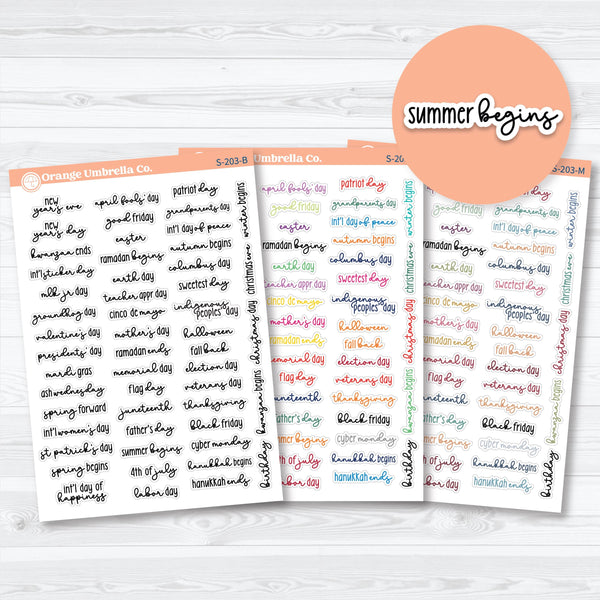 summer begins
Orange Umbrella Co. S-203-B
new
year's eve
new
year's day
kwanzaa ends
int'l sticker day
mlk jr day
groundhog day
valentine's day
presidents' day
mardi gras
ash wednesday
spring forward
int'l women's day
st patrick's day
spring begins
int'l day of
happiness
april fools' day
good friday
easter
ramadan begins
earth day
teacher appr day
cinco de mayo
mother's day
ramadan ends
memorial day
flag day
juneteenth
father's day
summer begins
4th of july
labor day
patriot day
grandparents day
int'l day of peace
autumn begins
columbus day
sweetest day
indigenous
peoples' day
halloween
fall back
election day
veterans day
thanksgiving
black friday
cyber monday
hanukkah begins
hanukkah ends
winter begins
christmas eve
christmas day
kwanzaa begins
birthday
Umbrella Co. S-20
april fools' day
good friday
easter
ramadan begins
earth day
teacher appr day
cinco de mayo
mother's day
ramadan ends
memorial day
flag day
juneteenth
father's day
summer begins
4th of july
labor day
patriot day
grandparents day
int'l day of peace
autumn begins
columbus day
sweetest day
indigenous
peoples' day
halloween
fall back
election day
veterans day
thanksgiving
black friday
cyber monday
hanukkah begins
hanukkah ends
winter begins
christmas eve
christmas day
kwanzaa begins
birthday
S-203-M
day
good friday
easter
ramadan begins
earth day
teacher appr day
cinco de mayo
mother's day
ramadan ends
memorial day
flag day
juneteenth
father's day
summer begins
4th of july
labor day
day
grandparents day
int'l day of peace
autumn begins
columbus day
sweetest day
indigenous
peoples' day
halloween
fall back
election day
veterans day
thanksgiving
black friday
cyber monday
hanukkah begins
hanukkah ends
winter begins
christmas eve
christmas day
kwanzaa begins
birthday